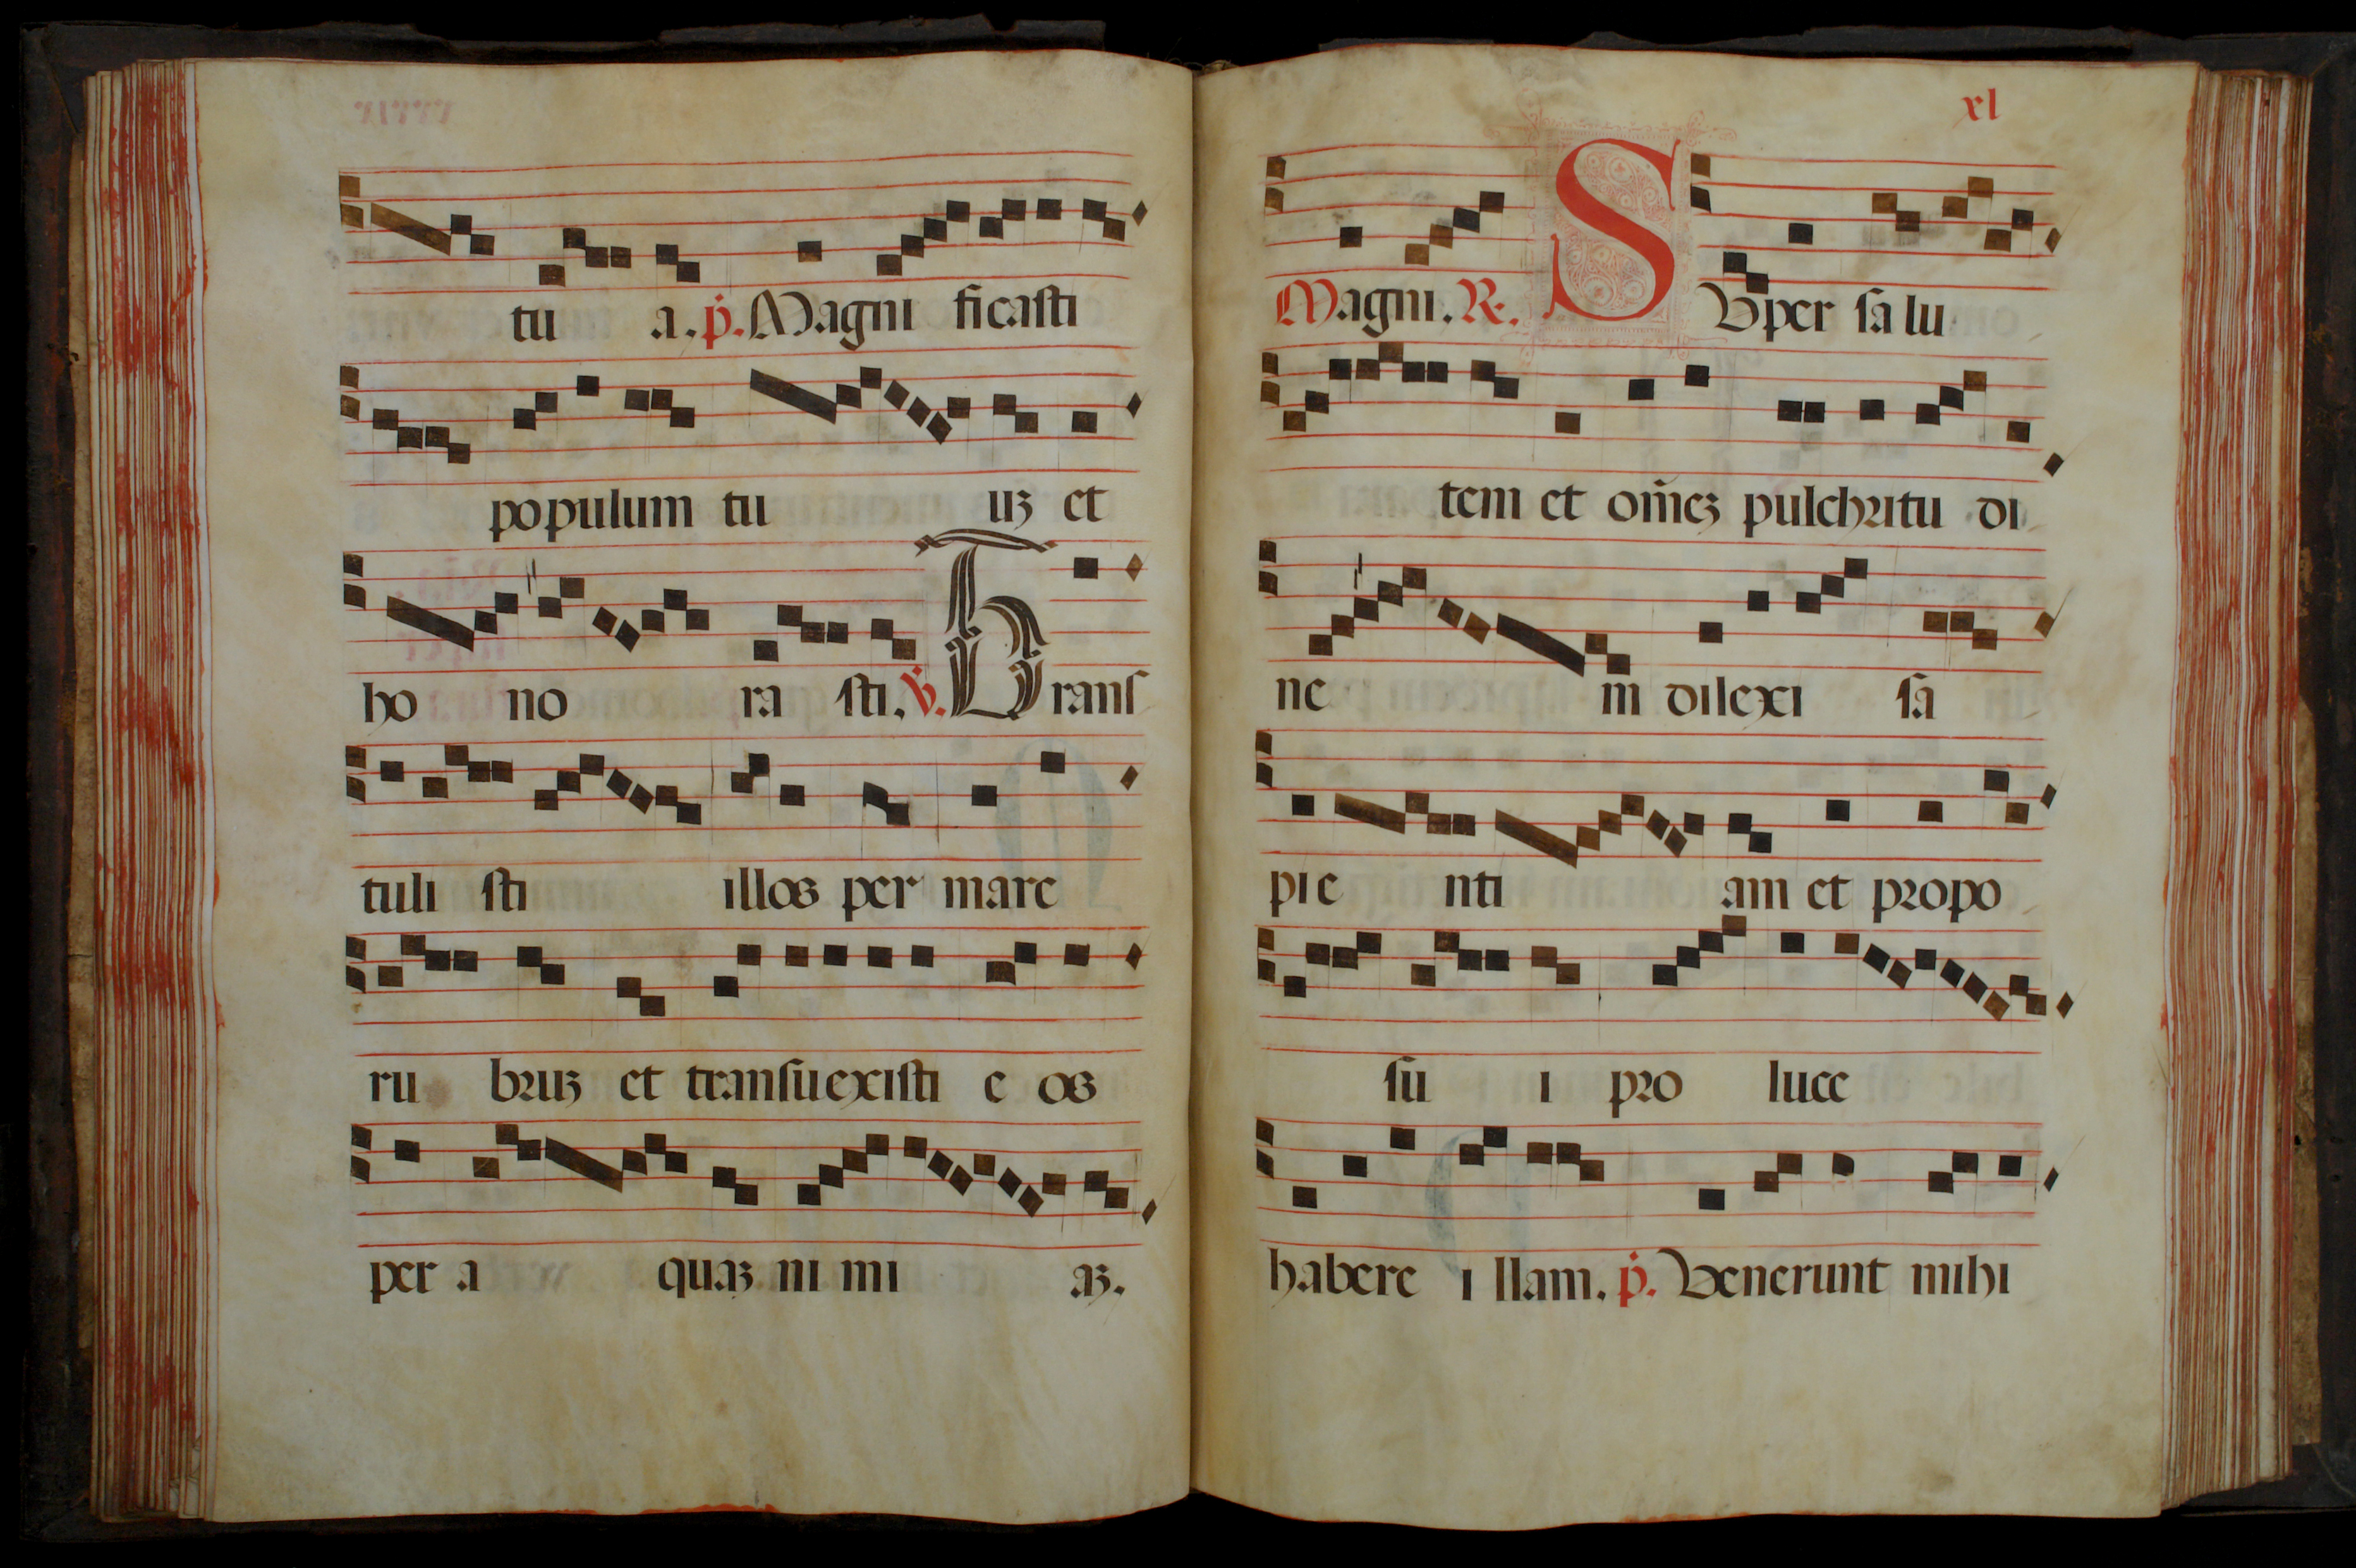 tu a. p̄. Magni ficasti
populum tu uꝫ et
ho no ra sti. ꝟ. Trans
tuli sti illos per mare
ru bruꝫ et transuexisti e os
per a quaꝫ ni mi aꝫ.
xl
Magni. R. Super salu
tem et om̄eꝫ pulchritu di
ne m dilexi sa
pie nti am et propo
su i pro luce
habere i llam. p̄. Venerunt mihi